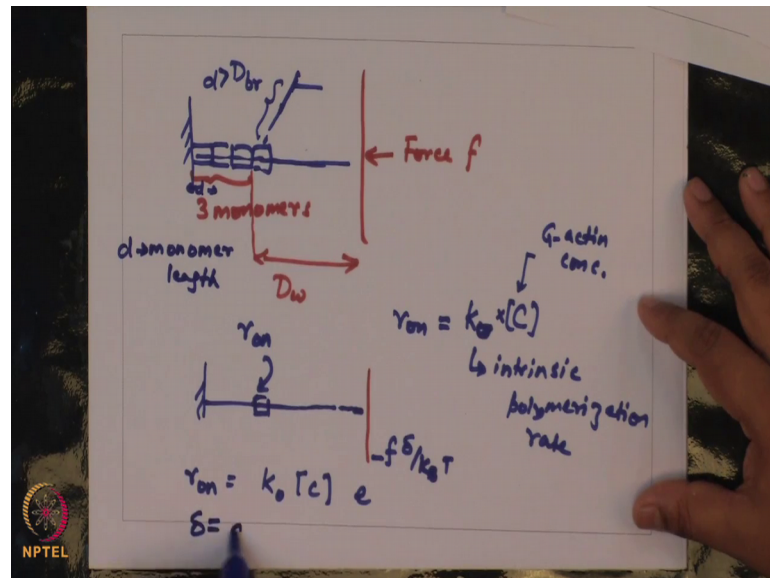 d>D_br
Force f
d
3 monomers
d→monomer
length
D_w
G-actin
conc.
r_on = k_o × [C]
↳ intrinsic
polymerization
rate
r_on
r_on = k_o [c] e^{-fδ/k_BT}
δ=
NPTEL